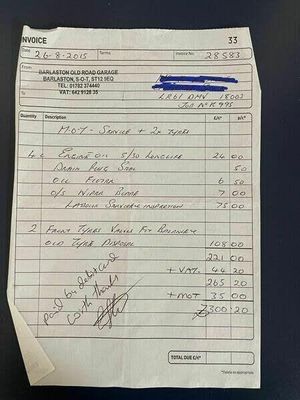 INVOICE 33
Date 26-8-2015 Terms Invoice No. 28583
From
BARLASTON OLD ROAD GARAGE
BARLASTON, S-O-T, ST12 9EQ
TEL: 01782 374440
VAT: 642 9128 35
To
LR61 DMV 18003
JOB No K995
Quantity Description £/€* £/€*
M.O.T - SERVICE + 2x TYRES
4 ENGINE OIL 5/30 LONGLIFE 24 00
DRAIN PLUG SEAL 50
OIL FILTER 6 50
O/S WIPER BLADE 7 00
LABOUR SERVICE & INSPECTION 75 00
2 FRONT TYRES VALVES FIT BALANCE
OLD TYRE DISPOSAL 108 00
221 00
+ VAT 44 20
265 20
+ MOT 35 00
£300 20
paid by debit card
with thanks
TOTAL DUE £/€*
*Delete as appropriate